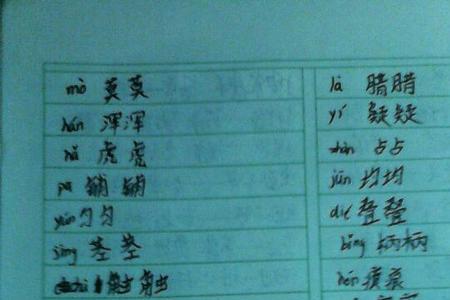 mò 莫莫
hún 浑浑
hǔ 虎虎
pū 铺铺
yún 匀匀
jīng 茎茎
触触
là 腊腊
yí 疑疑
zhàn 占占
jūn 均均
dié 叠叠
bǐng 柄柄
hén 痕痕